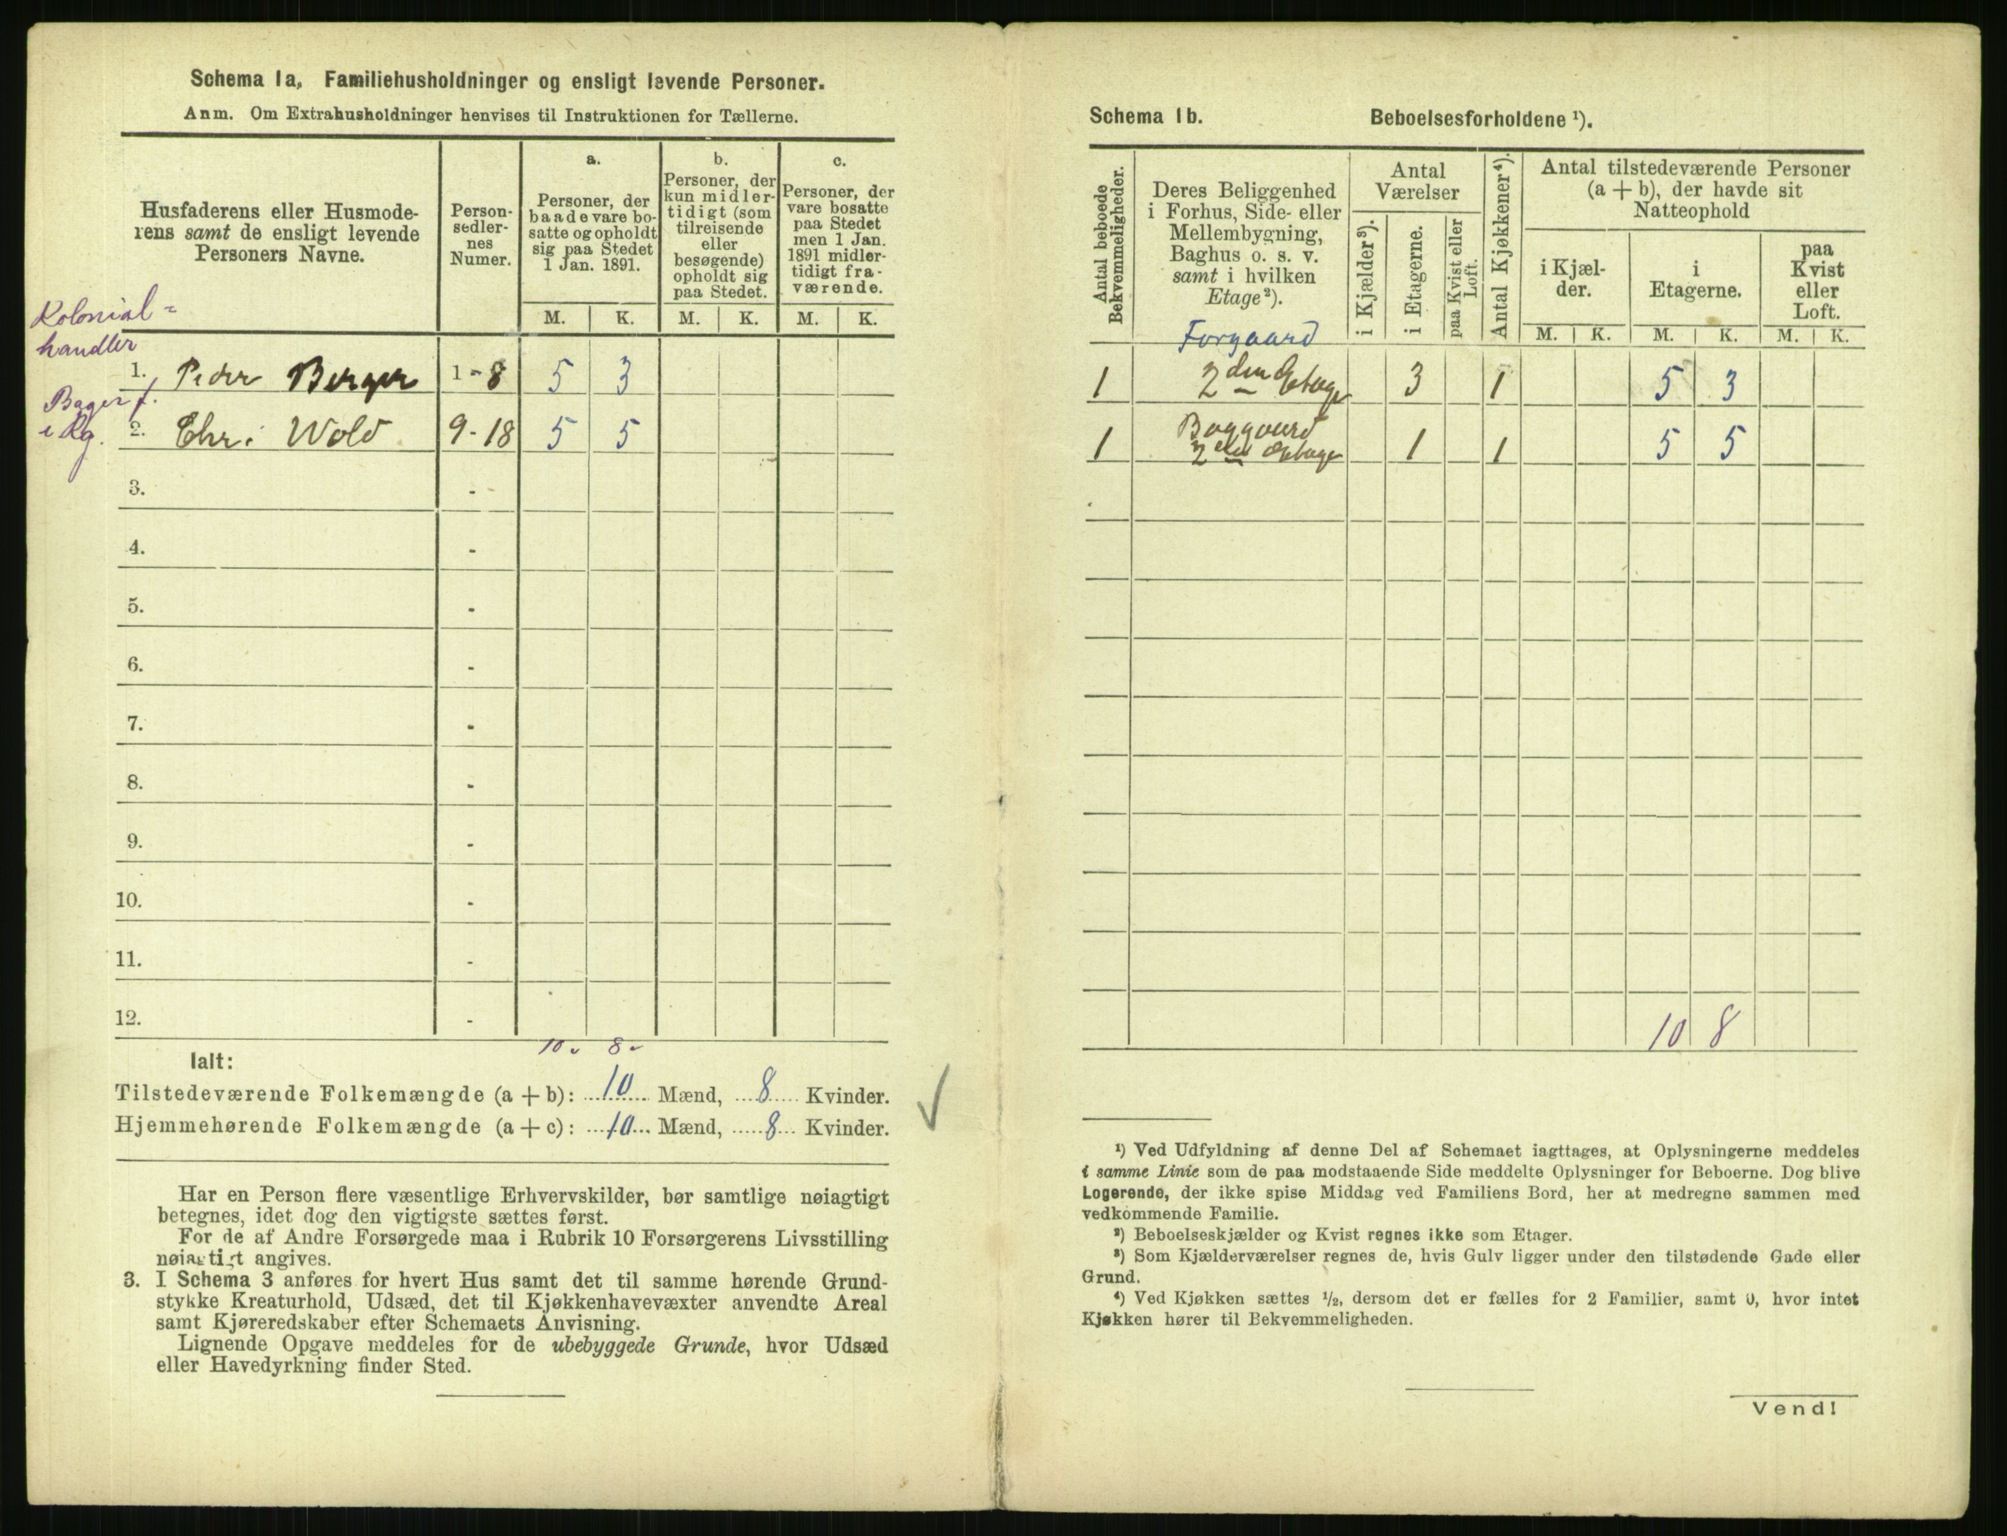 Schema 1a, Familiehusholdninger og ensligt levende Personer.
Anm. Om Extrahusholdninger henvises til Instruktionen for Tællerne.
Husfaderens eller Husmode-
rens samt de ensligt levende
Personers Navne.
Person-
sedler-
nes
Numer.
a.
Personer, der
baade vare bo-
satte og opholdt
sig paa Stedet
1 Jan. 1891.
b.
Personer, der
kun midler-
tidigt (som
tilreisende
eller
besøgende)
opholdt sig
paa Stedet.
c.
Personer, der
vare bosatte
paa Stedet
men 1 Jan.
1891 midler-
tidigt fra-
værende.
M. K. M. K. M. K.
Kolonial-
handler
1. Peder Berger 1-8 5 3
Bager f.
i Rg.
2. Chr. Wold 9-18 5 5
3. -
4. -
5. -
6. -
7. -
8. -
9. -
10. -
11. -
12. -
10 8
Ialt:
Tilstedeværende Folkemængde (a + b): 10 Mænd, 8 Kvinder.
Hjemmehørende Folkemængde (a + c): 10 Mænd, 8 Kvinder.
Har en Person flere væsentlige Erhvervskilder, bør samtlige nøiagtigt
betegnes, idet dog den vigtigste sættes først.
For de af Andre Forsørgede maa i Rubrik 10 Forsørgerens Livsstilling
nøiagtigt angives.
3. I Schema 3 anføres for hvert Hus samt det til samme hørende Grund-
stykke Kreaturhold, Udsæd, det til Kjøkkenhavevæxter anvendte Areal
samt Kjøreredskaber efter Schemaets Anvisning.
Lignende Opgave meddeles for de ubebyggede Grunde, hvor Udsæd
eller Havedyrkning finder Sted.
Schema 1b. Beboelsesforholdene ¹).
Antal beboede
Bekvemmeligheder.
Deres Beliggenhed
i Forhus, Side- eller
Mellembygning,
Baghus o. s. v.
samt i hvilken
Etage²).
Antal
Værelser
i Kjælder³).
i Etagerne.
paa Kvist eller
Loft.
Antal Kjøkkener⁴).
Antal tilstedeværende Personer
(a + b), der havde sit
Natteophold
i Kjæl-
der.
i
Etagerne.
paa
Kvist
eller
Loft.
M. K. M. K. M. K.
Forgaard
1 2den Etage 3 1 5 3
Baggaard
1 2den Etage 1 1 5 5
10 8
¹) Ved Udfyldning af denne Del af Schemaet iagttages, at Oplysningerne meddeles
i samme Linie som de paa modstaaende Side meddelte Oplysninger for Beboerne. Dog blive
Logerende, der ikke spise Middag ved Familiens Bord, her at medregne sammen med
vedkommende Familie.
²) Beboelseskjælder og Kvist regnes ikke som Etager.
³) Som Kjælderværelser regnes de, hvis Gulv ligger under den tilstødende Gade eller
Grund.
⁴) Ved Kjøkken sættes ½, dersom det er fælles for 2 Familier, samt 0, hvor intet
Kjøkken hører til Bekvemmeligheden.
Vend!